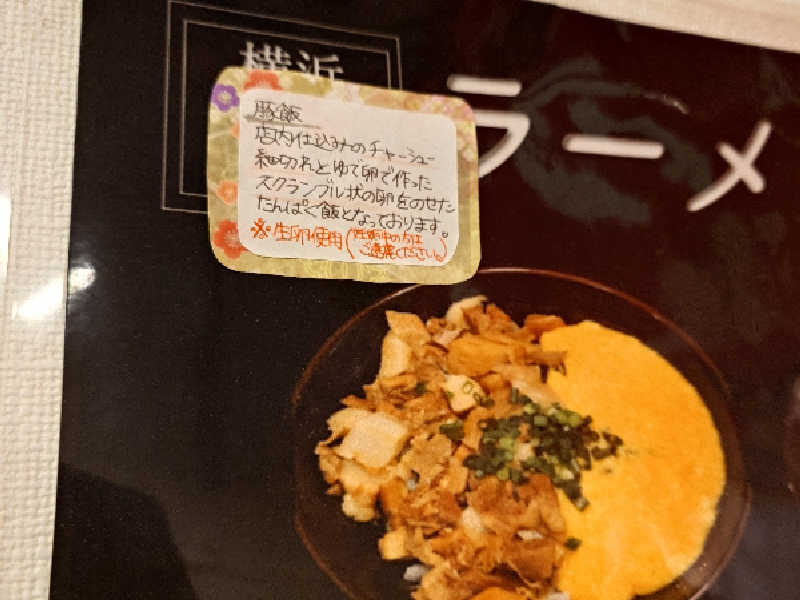 横浜
ラーメ
豚飯
店内仕込みのチャーシュー
細切れとゆで卵で作った
スクランブル状の卵をのせた
たんぱく飯となっております。
※生卵使用(妊娠中の方は
ご遠慮ください。)